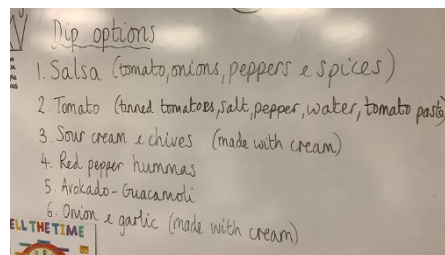 Dip options
1. Salsa (tomato, onions, peppers e spices)
2. Tomato (tinned tomatoes, salt, pepper, water, tomato paste)
3. Sour cream e chives (made with cream)
4. Red pepper hummas
5. Avokado - Guacamoli
6. Onion e garlic (made with cream)
ELL THE TIME